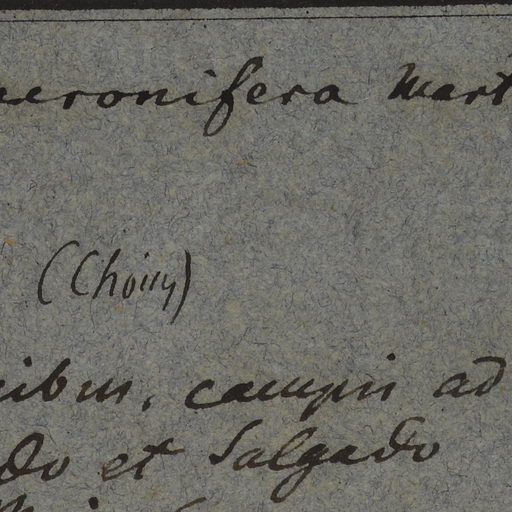 ucronifera Mart
(Choisy)
ibus, campis ad
do et Salgado